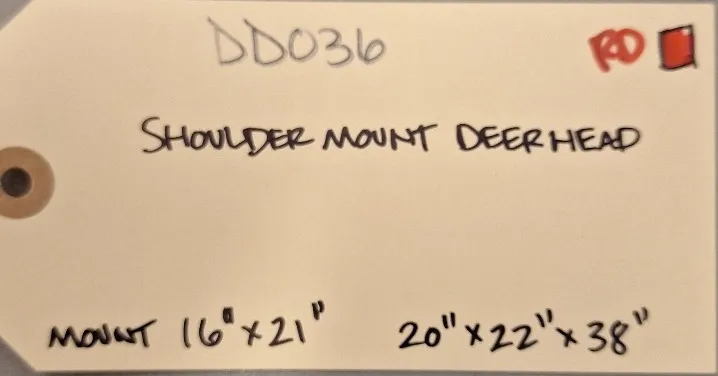 DD036 RD
SHOULDER MOUNT DEER HEAD
MOUNT 16" x 21" 20" x 22" x 38"